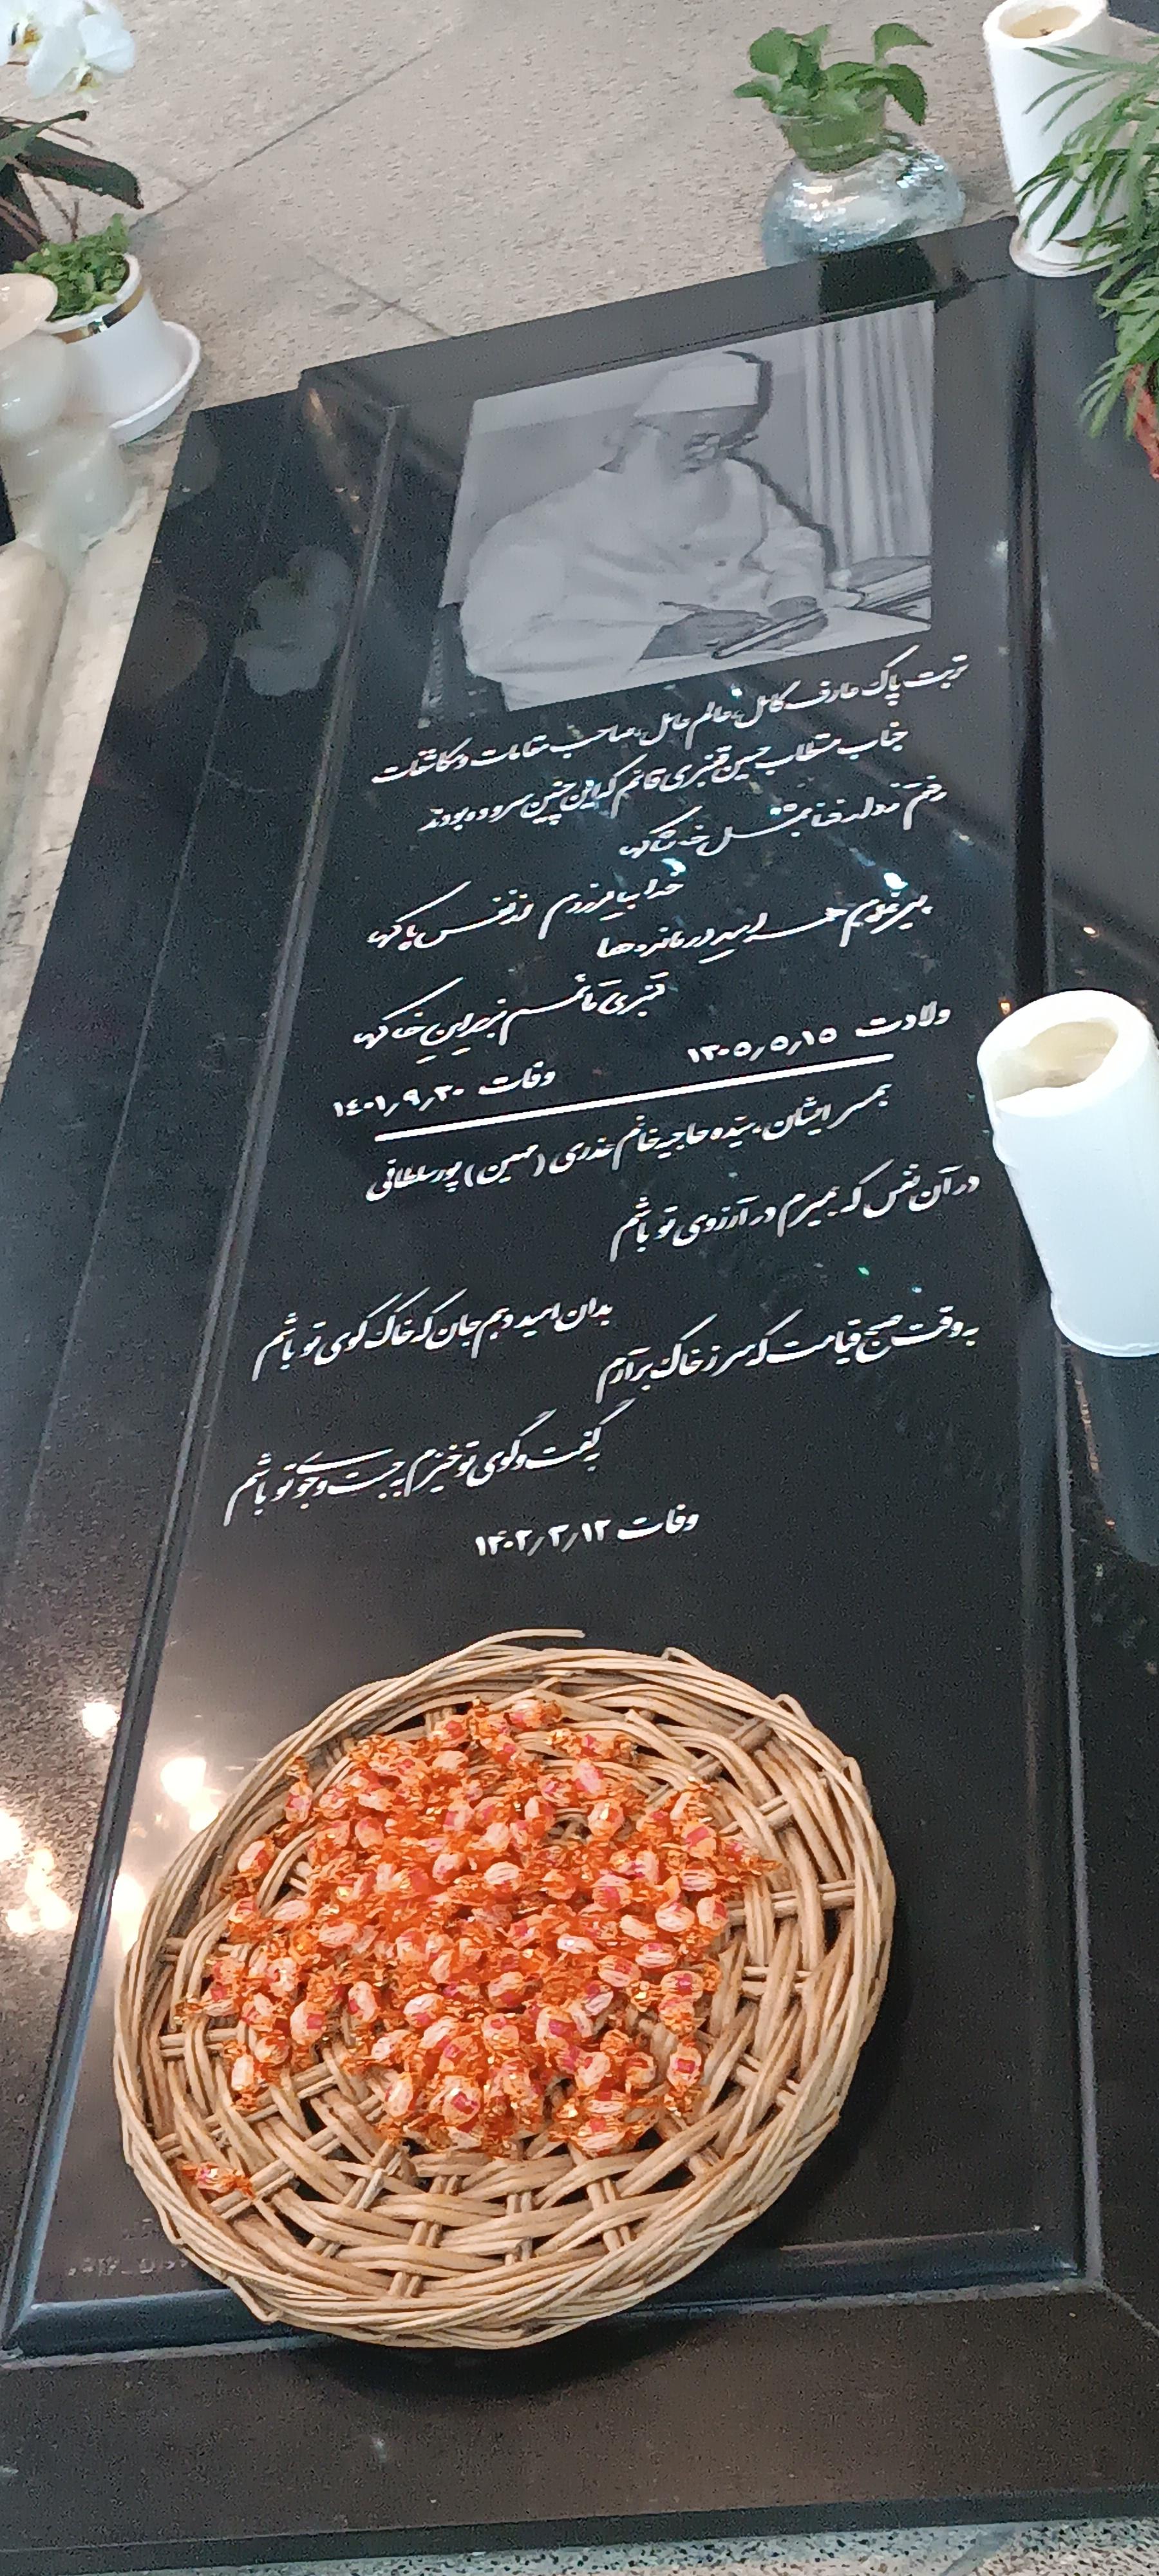 تربت پاک عارف کامل، عالم عامل، صاحب مقامات و مکاشفات
جناب مستطاب حسین قنبری قائم که این چنین سروده بودند
رفتم
خدا بیامرزدم از نفس پاکها
پیر غلام همه امید درمانده ها
قنبری قائمم زیر این خاکها
ولادت ۱۳۰۵٫۵٫۱۵
وفات ۱۴۰۱٫۹٫۲۰
همسر ایشان، سیّده حاجیه خانم عذری (مهین) پورسلطانی
در آن نفس که بمیرم در آرزوی تو باشم
بدان امید دهم جان که خاک کوی تو باشم
به وقت صبح قیامت که سر ز خاک برآرم
به گفت و گوی تو خیزم به جست و جوی تو باشم
وفات ۱۴۰۲٫۳٫۱۲